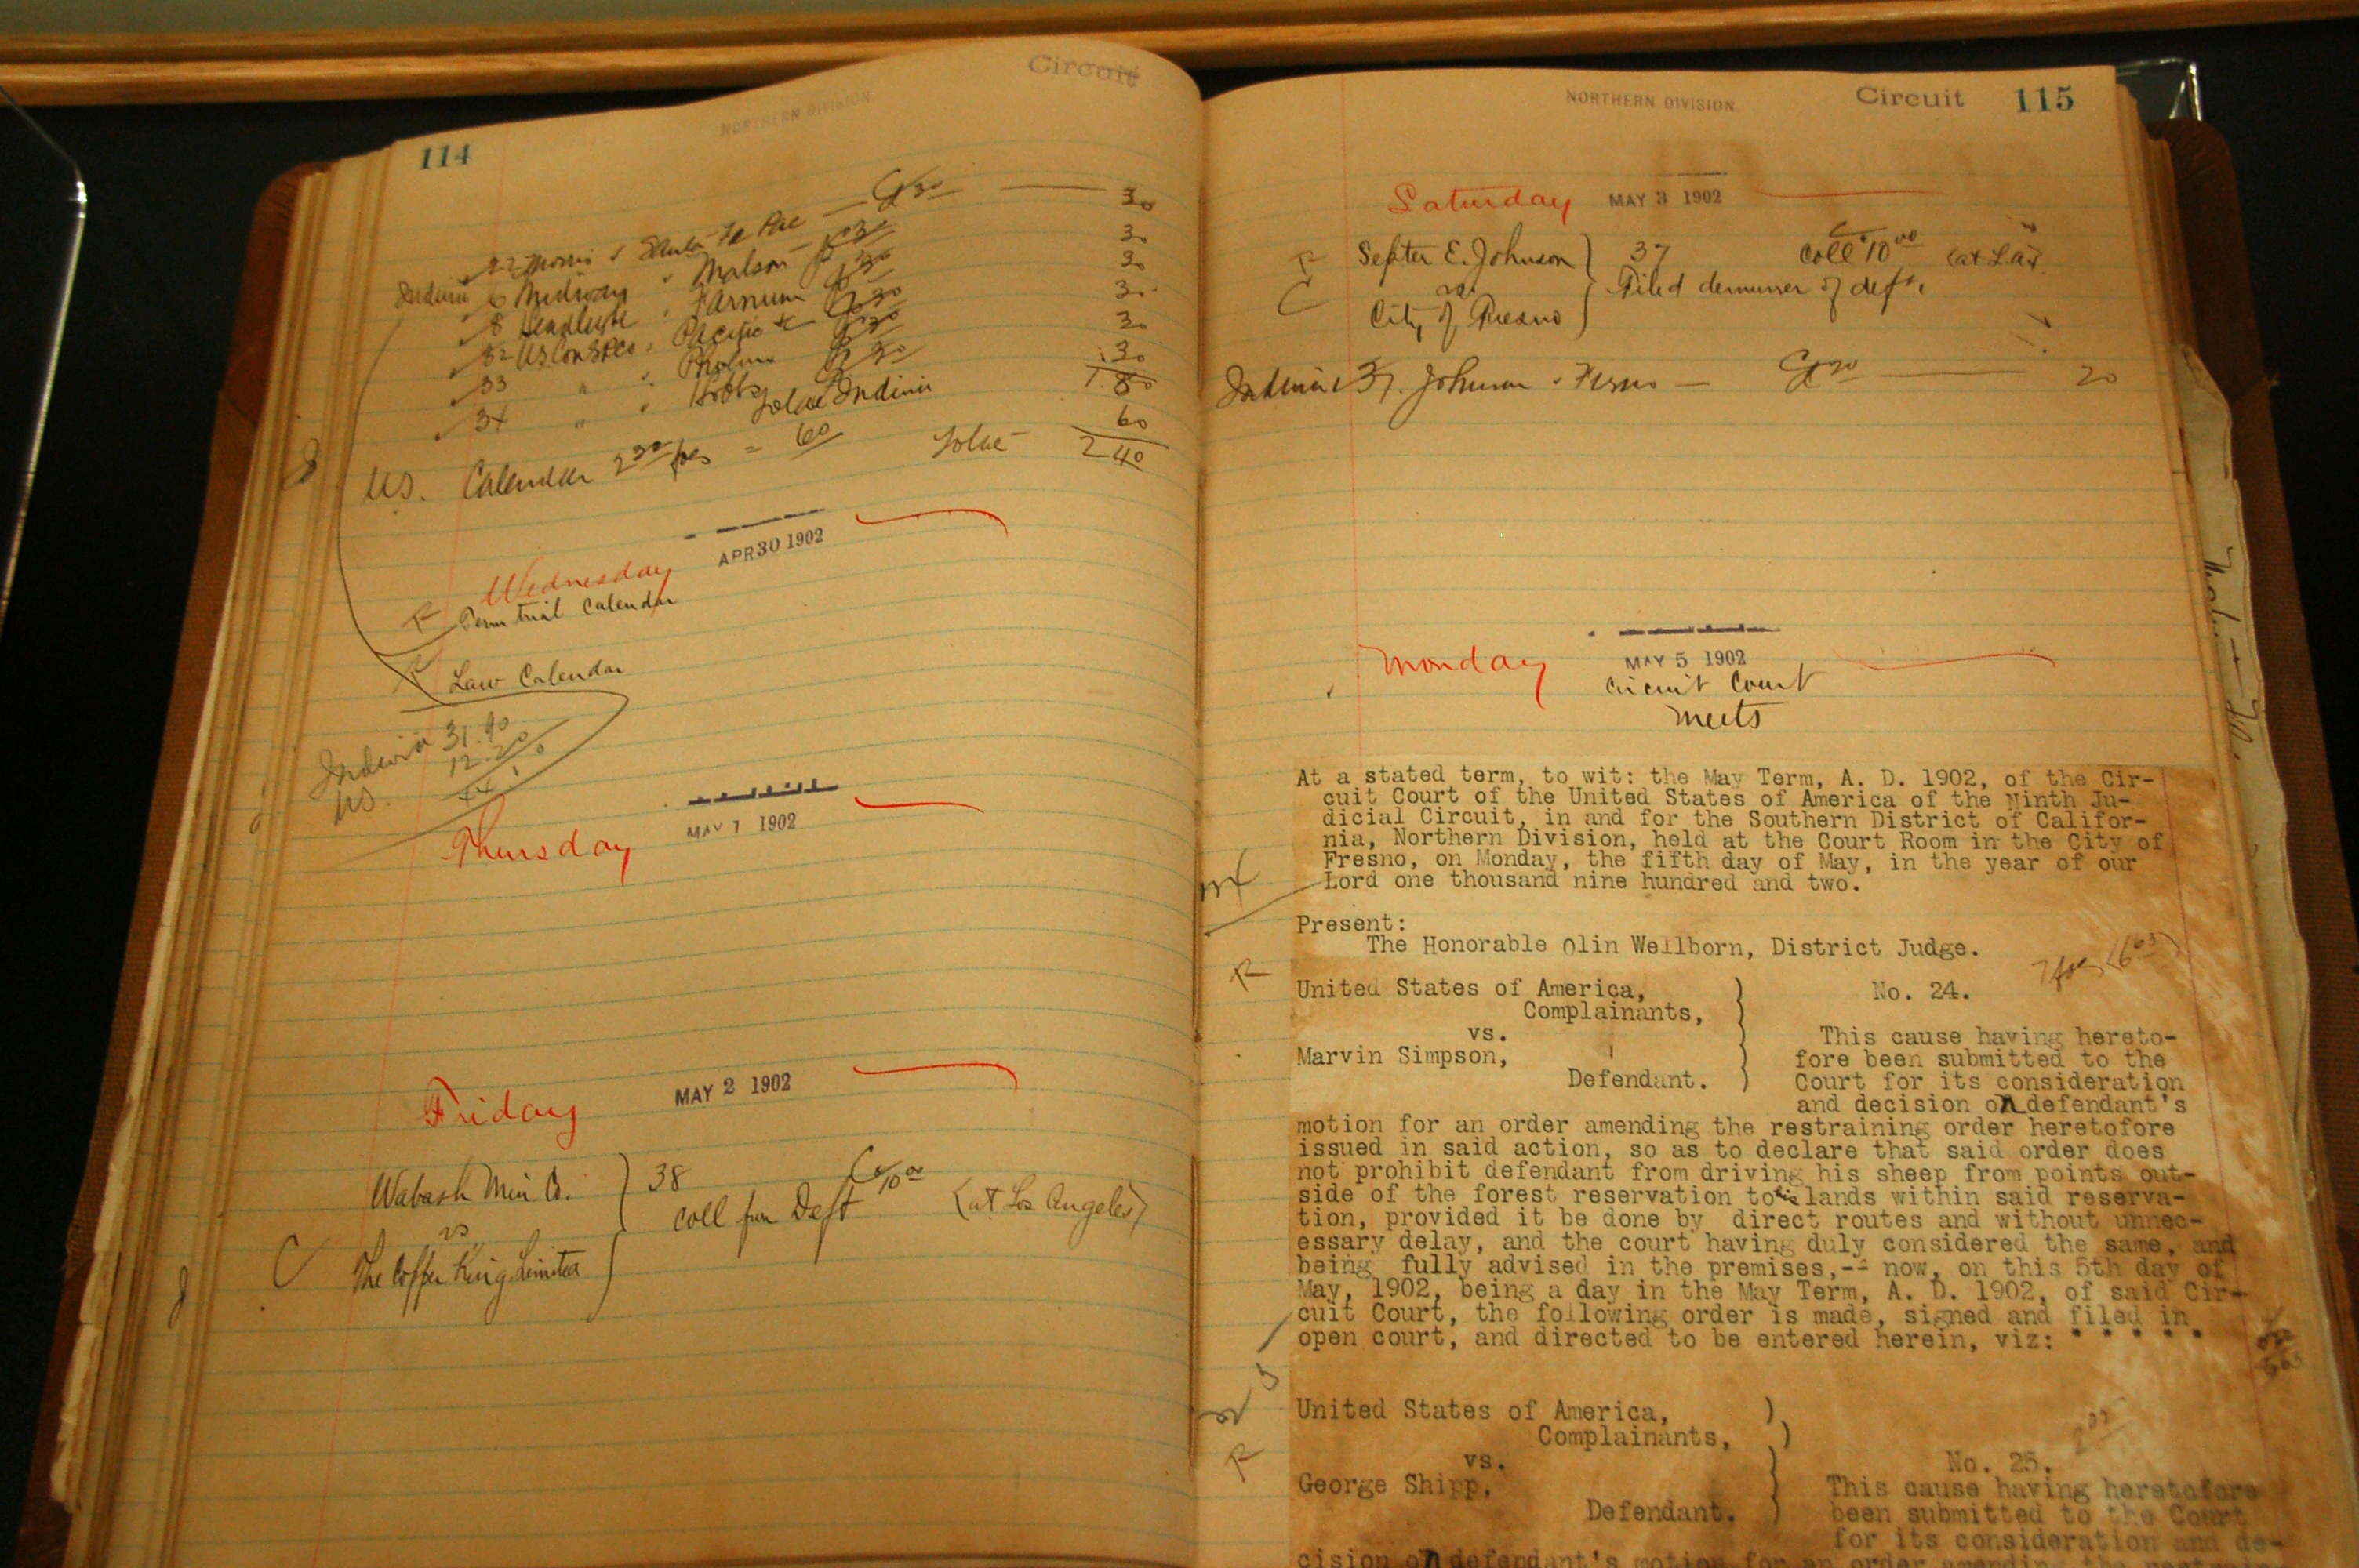 Circuit
NORTHERN DIVISION.
114
30
Indivi 6 Midway 30
8 30
32 US Con Pacific 30
33 " 30
34 " Hobbs 30
Indivi 1.80
US. Calendar 2 30 fos = 60 60
2 40
Wednesday APR 30 1902
R Term trial Calendar
R Law Calendar
Indivi 31.90
US. 12.20
Thursday MAY 1 1902
Friday MAY 2 1902
Wabash Min Co. 38
vs Coll fum Deft 10 00 (at Los Angeles)
The Copper King Limited
NORTHERN DIVISION. Circuit 115
Saturday MAY 3 1902
R Septer E. Johnson 37 Coll 10 00 (at LA)
C vs. Filed demurrer of deft.
City of Fresno
Indivi 37. Johnson Fresno — 20
Monday MAY 5 1902
Circuit Court
meets
At a stated term, to wit: the May Term, A. D. 1902, of the Cir-
cuit Court of the United States of America of the Ninth Ju-
dicial Circuit, in and for the Southern District of Califor-
nia, Northern Division, held at the Court Room in the City of
Fresno, on Monday, the fifth day of May, in the year of our
Lord one thousand nine hundred and two.
Present:
The Honorable Olin Wellborn, District Judge.
R
United States of America,
Complainants,
vs.
Marvin Simpson,
Defendant.
No. 24.
This cause having hereto-
fore been submitted to the
Court for its consideration
and decision on defendant's
motion for an order amending the restraining order heretofore
issued in said action, so as to declare that said order does
not prohibit defendant from driving his sheep from points out-
side of the forest reservation to his lands within said reserva-
tion, provided it be done by direct routes and without unnec-
essary delay, and the court having duly considered the same, and
being fully advised in the premises,-- now, on this 5th day of
May, 1902, being a day in the May Term, A. D. 1902, of said Cir-
cuit Court, the following order is made, signed and filed in
open court, and directed to be entered herein, viz: * * * * *
R
United States of America,
Complainants,
vs.
George Shipp,
Defendant.
No. 25.
This cause having heretofore
been submitted to the Court
for its consideration and de-
cision on defendant's motion for an order amending the